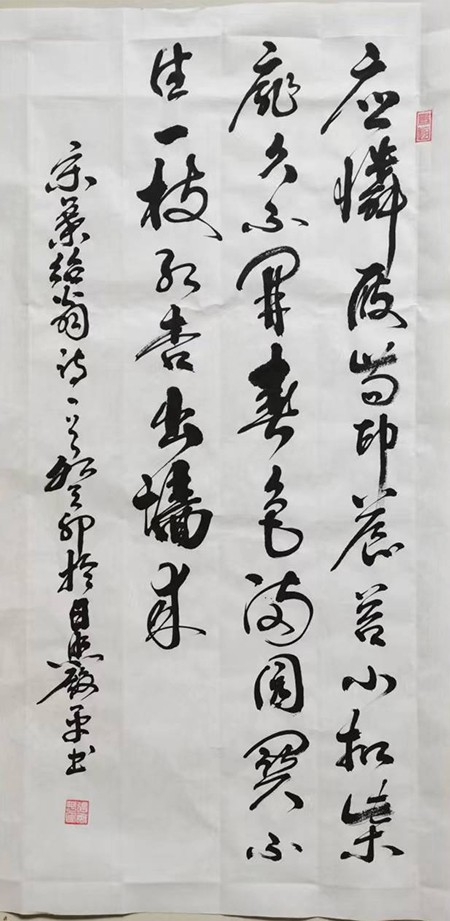 应憐屐齿印苍苔小扣柴
扉久不開春色满園関不
住一枝红杏出墙来
宋葉绍翁诗一首癸卯於日照嚴平书